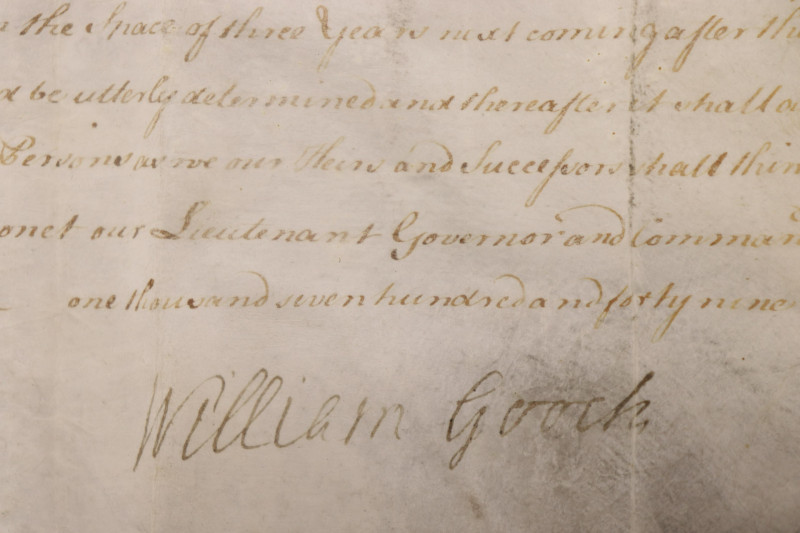 the Space of three Years next coming after th
d be utterly determined and thereafter it shall a
Persons as we our Heirs and Successors shall thin
onet our Lieutenant Governor and Comman
one thousand seven hundred and forty nine
William Gooch